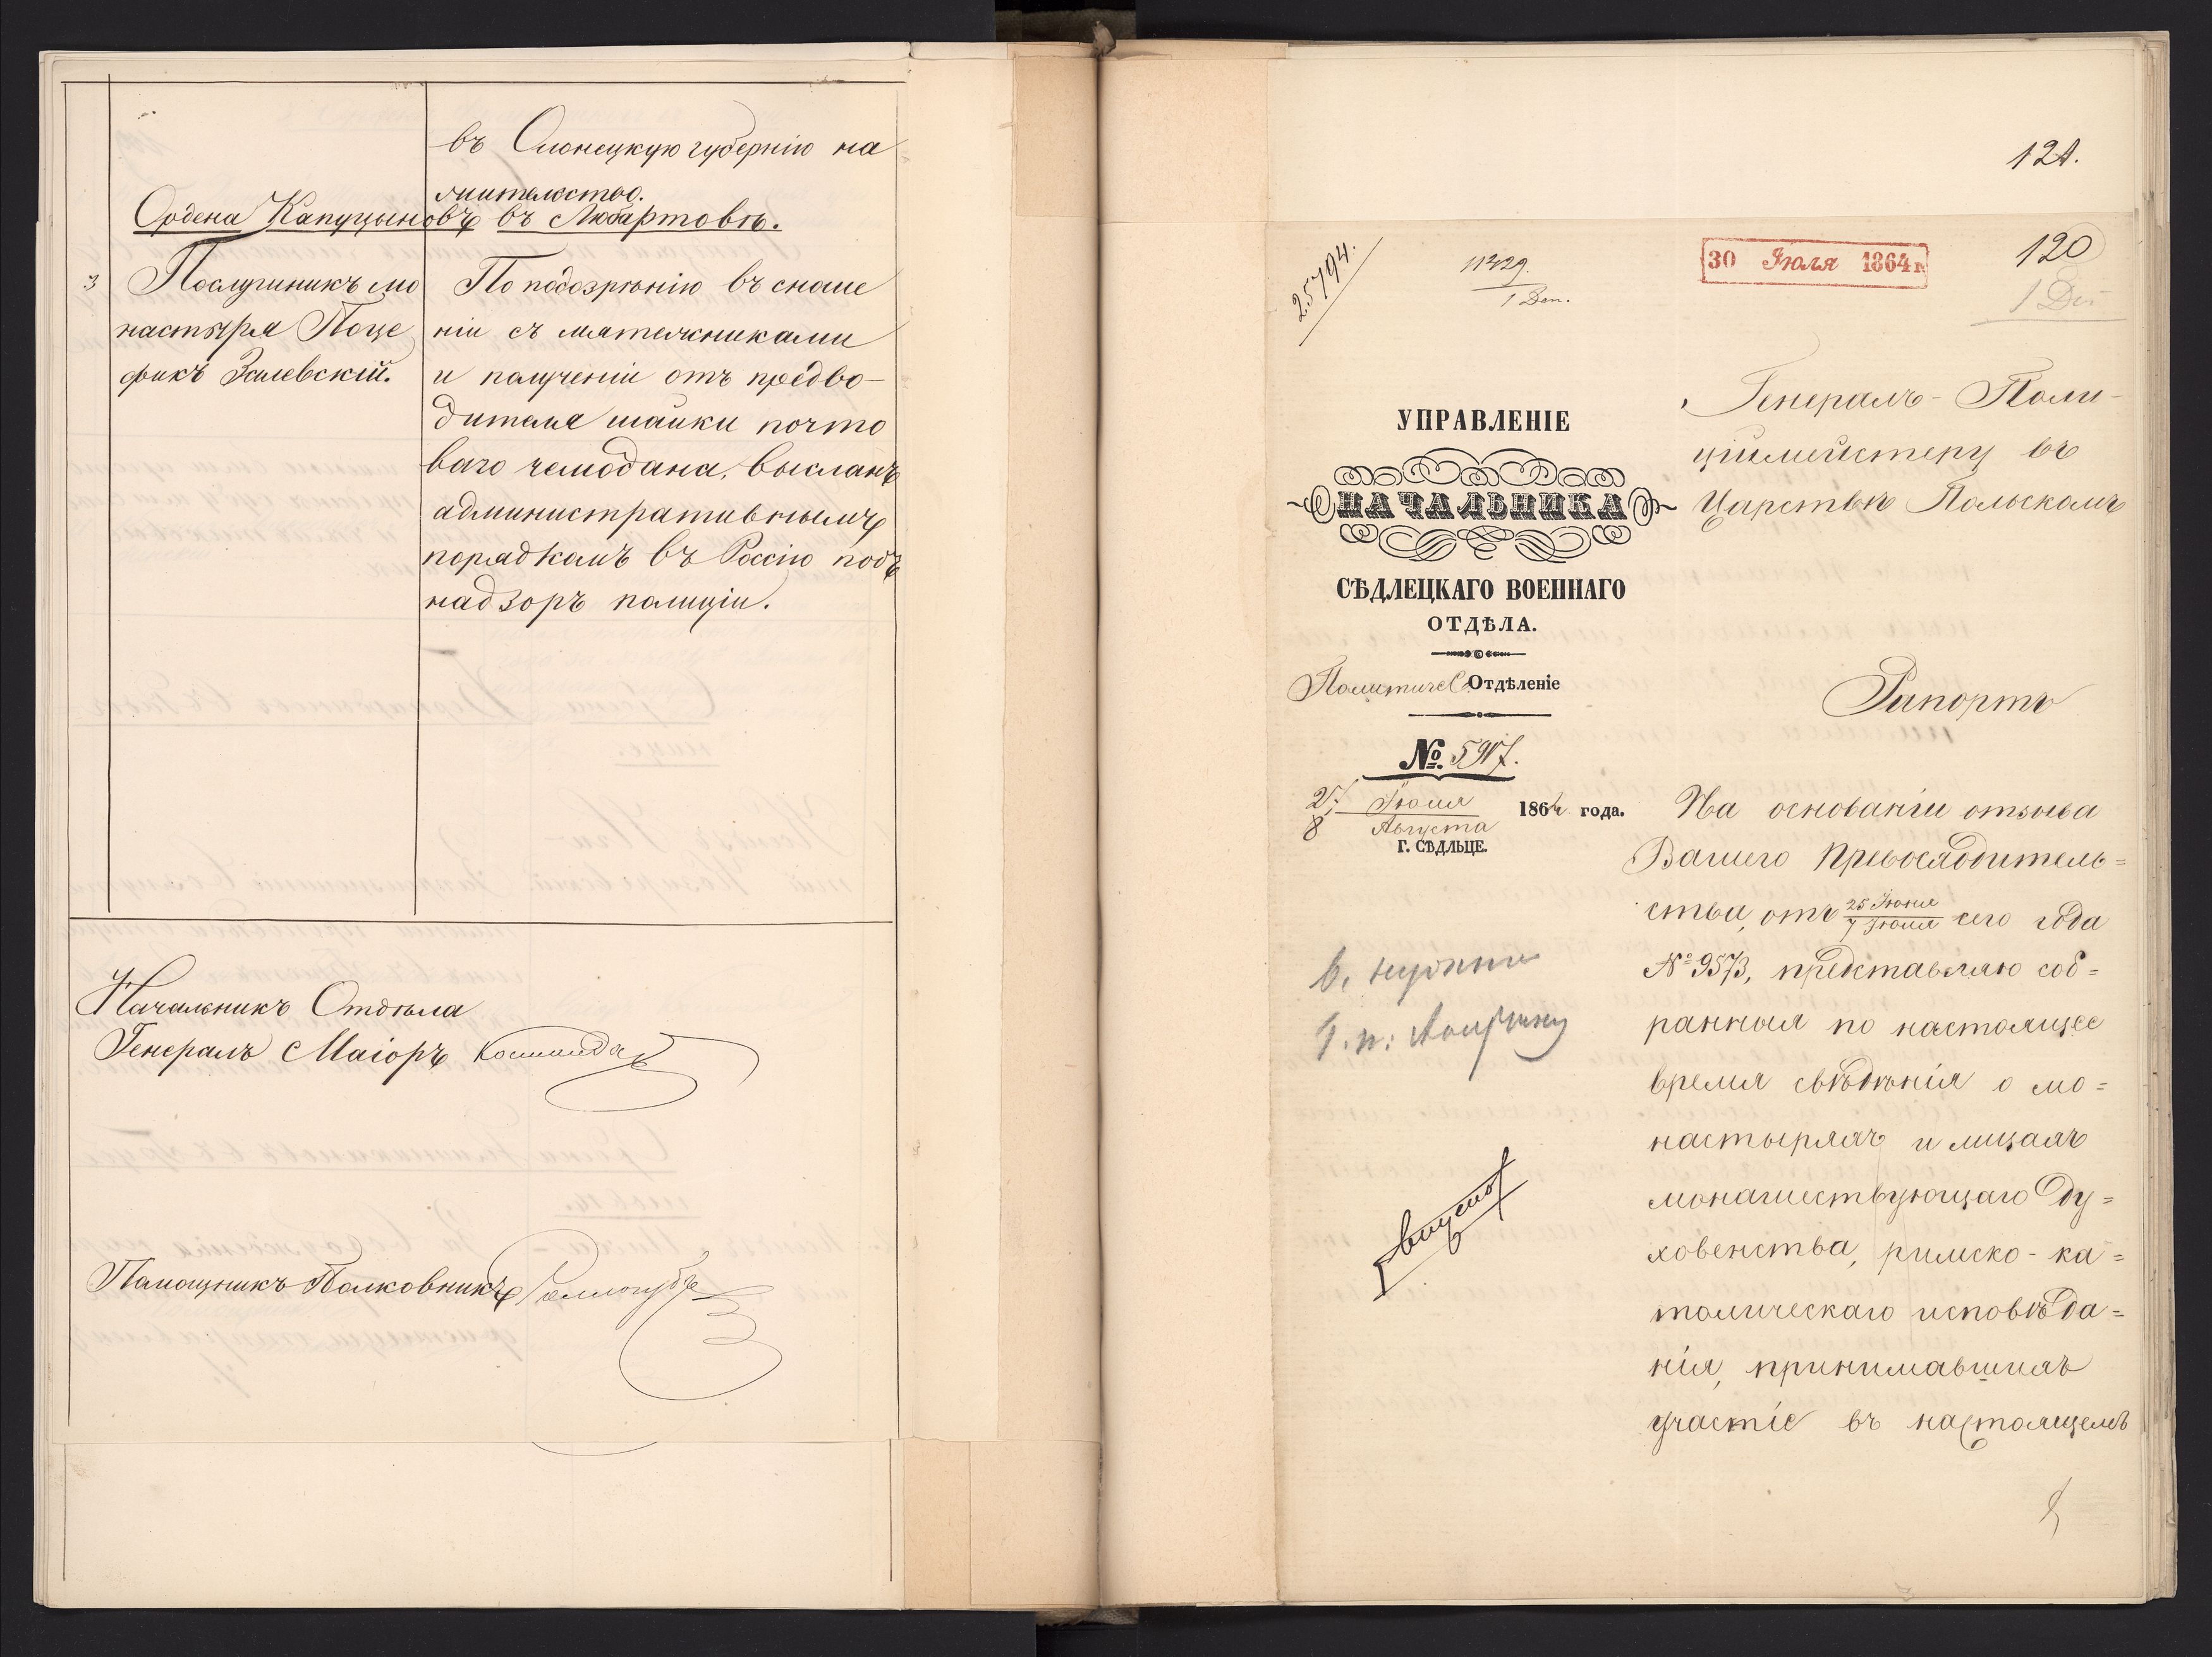 въ Олонецкую губернію на
жительство.
Ордена Капуцыновъ въ Любартовѣ.
3 Послушникъ мо
настыря Поце
фикъ Зялевскій.
По подозрѣнію въ сноше
ніи съ мятежниками
и полученіи отъ предво-
дителя шайки почто
ваго чемодана, высланъ
административнымъ
порядкомъ въ Россію подъ
надзоръ полиціи.
Начальникъ Отдѣла
Генералъ Маіоръ
Помощникъ Полковникъ
121.
25794.
11429.
30 Іюля 1864
120
УПРАВЛЕНІЕ
НАЧАЛЬНИКА
СѢДЛЕЦКАГО ВОЕННАГО
ОТДѢЛА.
Политичес Отдѣленіе
№ 5917.
27/8 Іюля/Августа 1864 года.
Г. СѢДЛЬЦЕ.
Генералъ-Поли-
ціймейстеру въ
Царствѣ Польскомъ
Рапортъ
На основаніи отзыва
Вашего Превосходитель=
ства, отъ 25 Іюня/7 Іюля сего года
№ 9573, представляю соб=
ранныя по настоящее
время свѣдѣнія о мо=
настыряхъ и лицахъ
монашествующаго Ду=
ховенства, римско-ка=
толическаго исповѣда=
нія, принимавшихъ
участіе въ настоящемъ